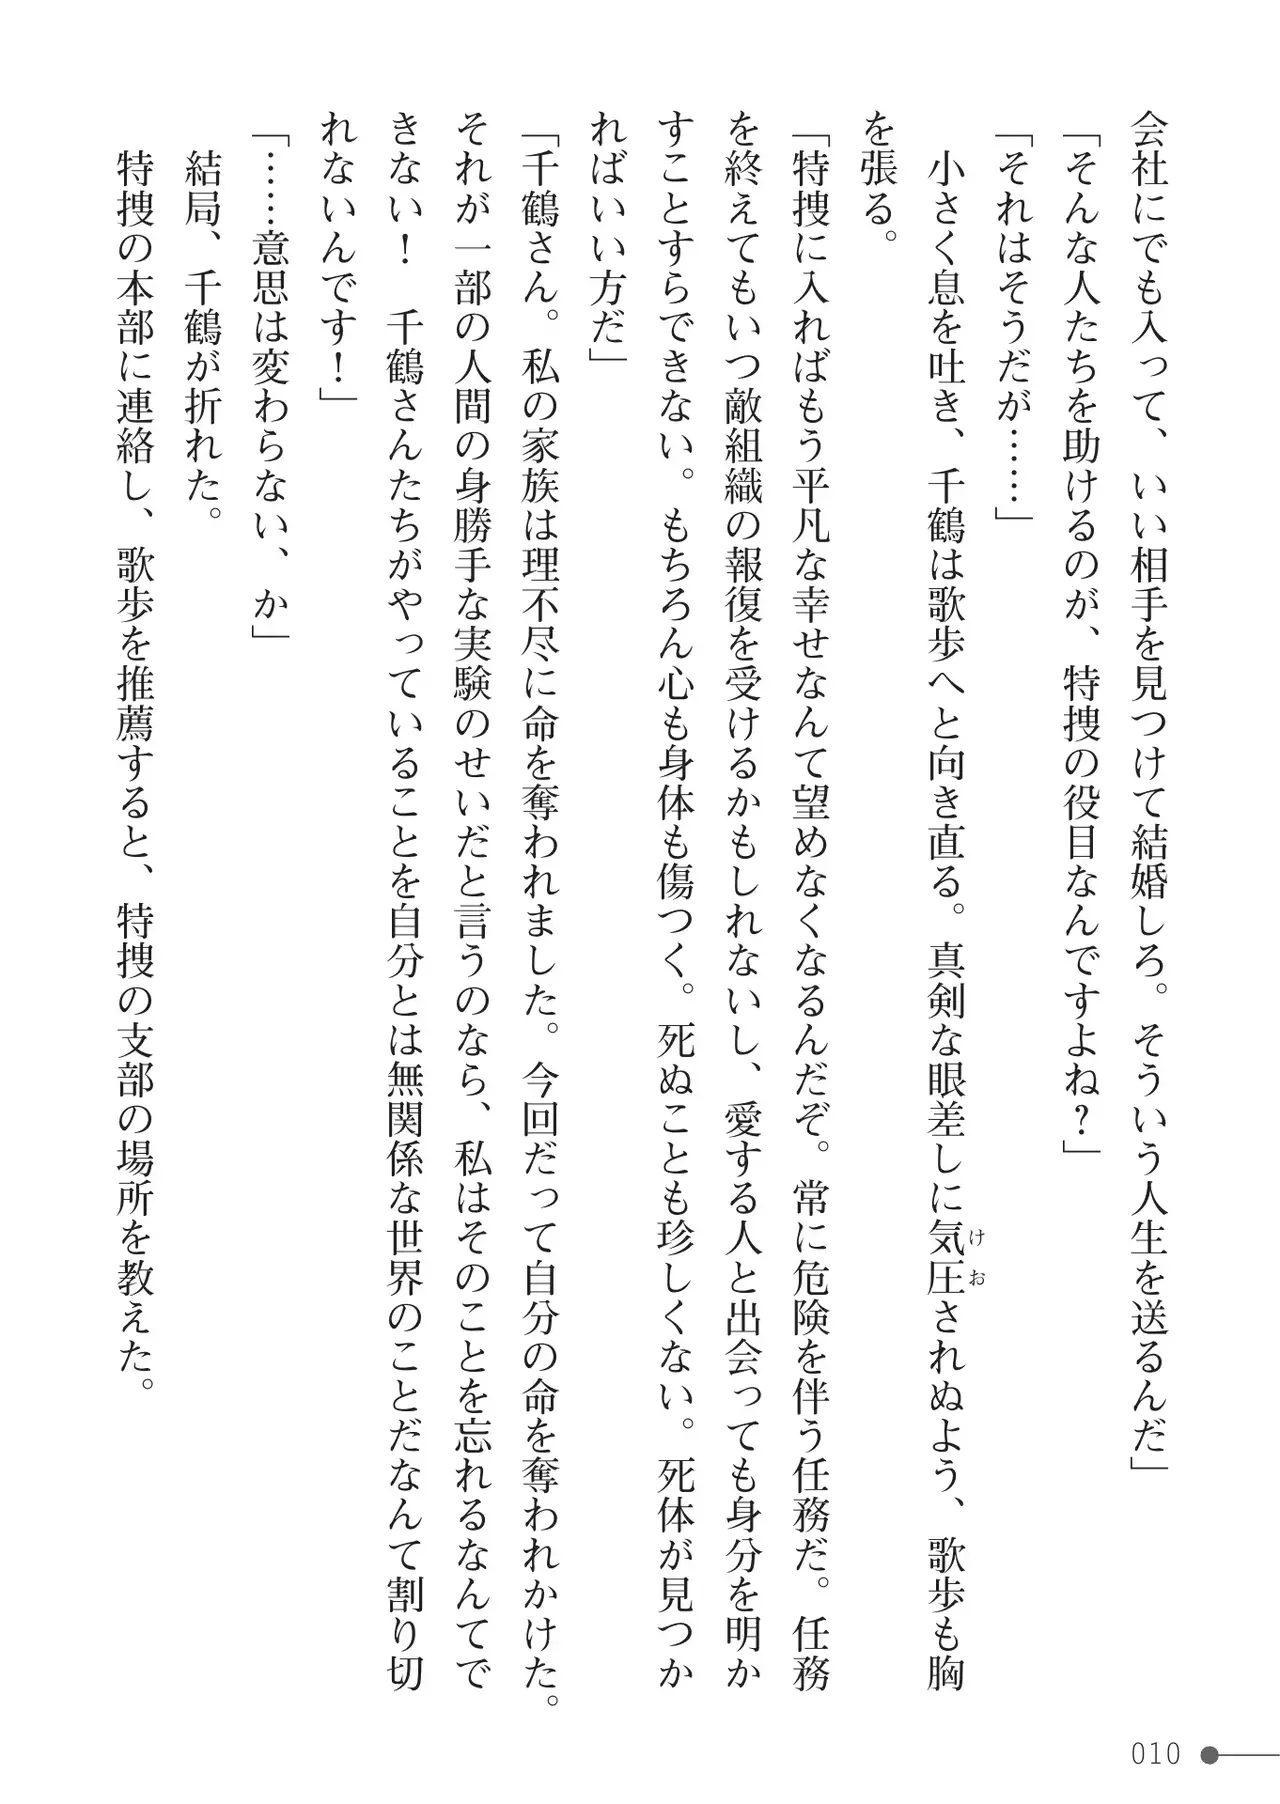 会社にでも入って、いい相手を見つけて結婚しろ。そういう人生を送るんだ」
「そんな人たちを助けるのが、特捜の役目なんですよね？」
「それはそうだが……」
　小さく息を吐き、千鶴は歌歩へと向き直る。真剣な眼差しに気圧されぬよう、歌歩も胸
けお
を張る。
「特捜に入ればもう平凡な幸せなんて望めなくなるんだぞ。常に危険を伴う任務だ。任務
を終えてもいつ敵組織の報復を受けるかもしれないし、愛する人と出会っても身分を明か
すことすらできない。もちろん心も身体も傷つく。死ぬことも珍しくない。死体が見つか
ればいい方だ」
「千鶴さん。私の家族は理不尽に命を奪われました。今回だって自分の命を奪われかけた。
それが一部の人間の身勝手な実験のせいだと言うのなら、私はそのことを忘れるなんてで
きない！　千鶴さんたちがやっていることを自分とは無関係な世界のことだなんて割り切
れないんです！」
「……意思は変わらない、か」
　結局、千鶴が折れた。
　特捜の本部に連絡し、歌歩を推薦すると、特捜の支部の場所を教えた。
010